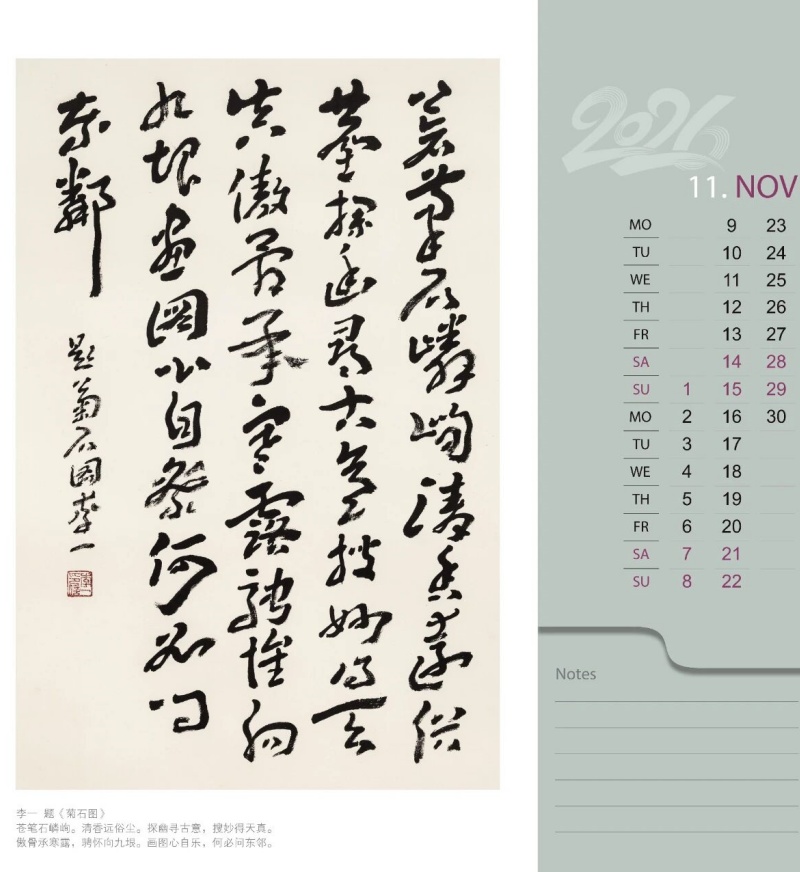 蒼筆石嶙峋清香遠俗
塵探幽尋古意搜妙得天
真傲骨承寒露騁懷向
九垠畫圖心自樂何必問
東鄰
題菊石圖李一
李一 题《菊石图》
苍笔石嶙峋。清香远俗尘。探幽寻古意，搜妙得天真。
傲骨承寒露，骋怀向九垠。画图心自乐，何必问东邻。
2026
11. NOV
MO 9 23
TU 10 24
WE 11 25
TH 12 26
FR 13 27
SA 14 28
SU 1 15 29
MO 2 16 30
TU 3 17
WE 4 18
TH 5 19
FR 6 20
SA 7 21
SU 8 22
Notes